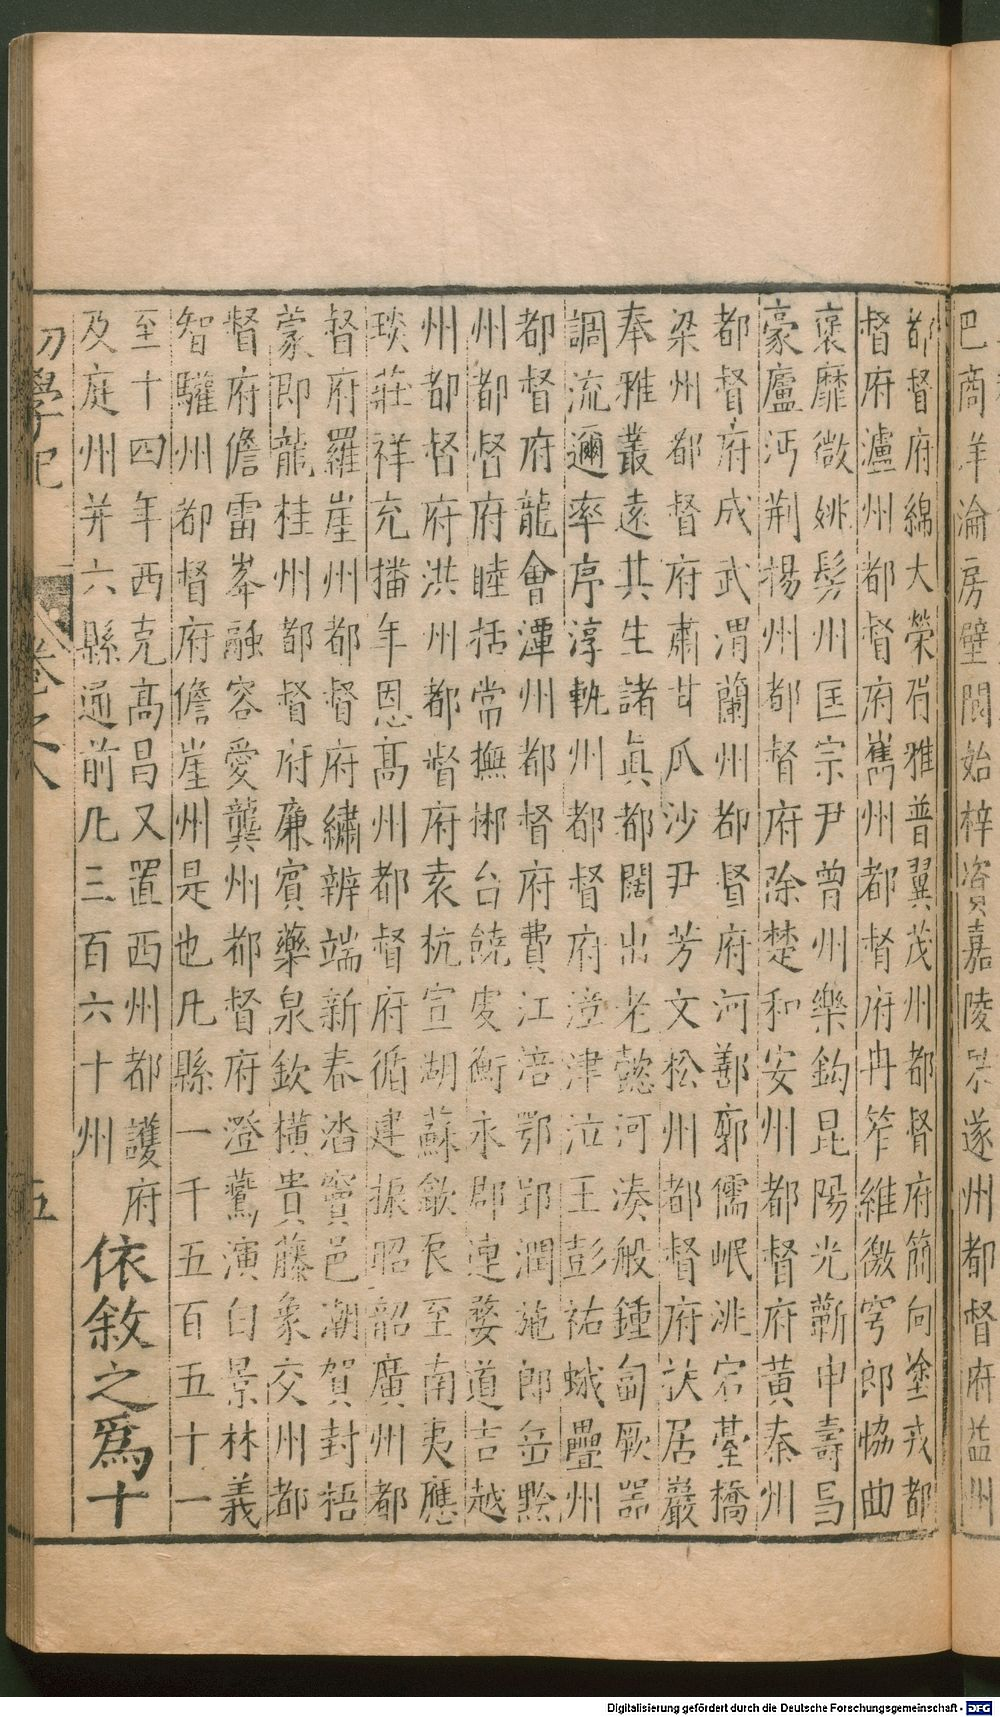 巴商洋淪房壁閬始梓資嘉陵遂州都督府益州
都督府綿大榮肖雅普翼茂州都督府簡向塗戎都
督府瀘州都督府雟州都督府冉笮維徼穹郎恊曲
褒靡微姚髳州匡宗尹曾州樂鈎昆陽光蘄申壽
豪廬沔荆楊州都督府除楚和安州都督府黃秦州
都督府成武渭蘭州都督府河鄯廓儒岷洮宕䑓橋
梁州都督府肅甘瓜沙尹芳文松州都督府扶居巖
奉雅叢遠其生諸眞都闊出老懿河湊般鍾匐厥器
調流邇率序淳軌州都督府澄津泣王彭祐蛾疊州
都督府龍會潭州都督府費江涪鄂郢潤施郎岳黔
州都督府睦括常撫郴台饒虔衡永郡連婺道吉越
州都督府洪州都督府袁杭宣胡蘇歙辰至南夷應
琰莊祥充播年恩髙州都督府循建振昭韶廣州都
督府羅崖州都督府繡辨端新春㳫竇邑潮賀封梧
蒙即龍桂州都督府廉賓藥泉欽橫貴藤象交州都
督府儋雷峯融容愛龔州都督府澄鷰演白景林義
智驩州都督府儋崖州是也凡縣一千五百五十一
至十四年西克髙昌又置西州都護府
及庭州并六縣通前凡三百六十州
依敘之爲十
初學記
卷之八
五
Digitalisierung gefördert durch die Deutsche Forschungsgemeinschaft - DFG